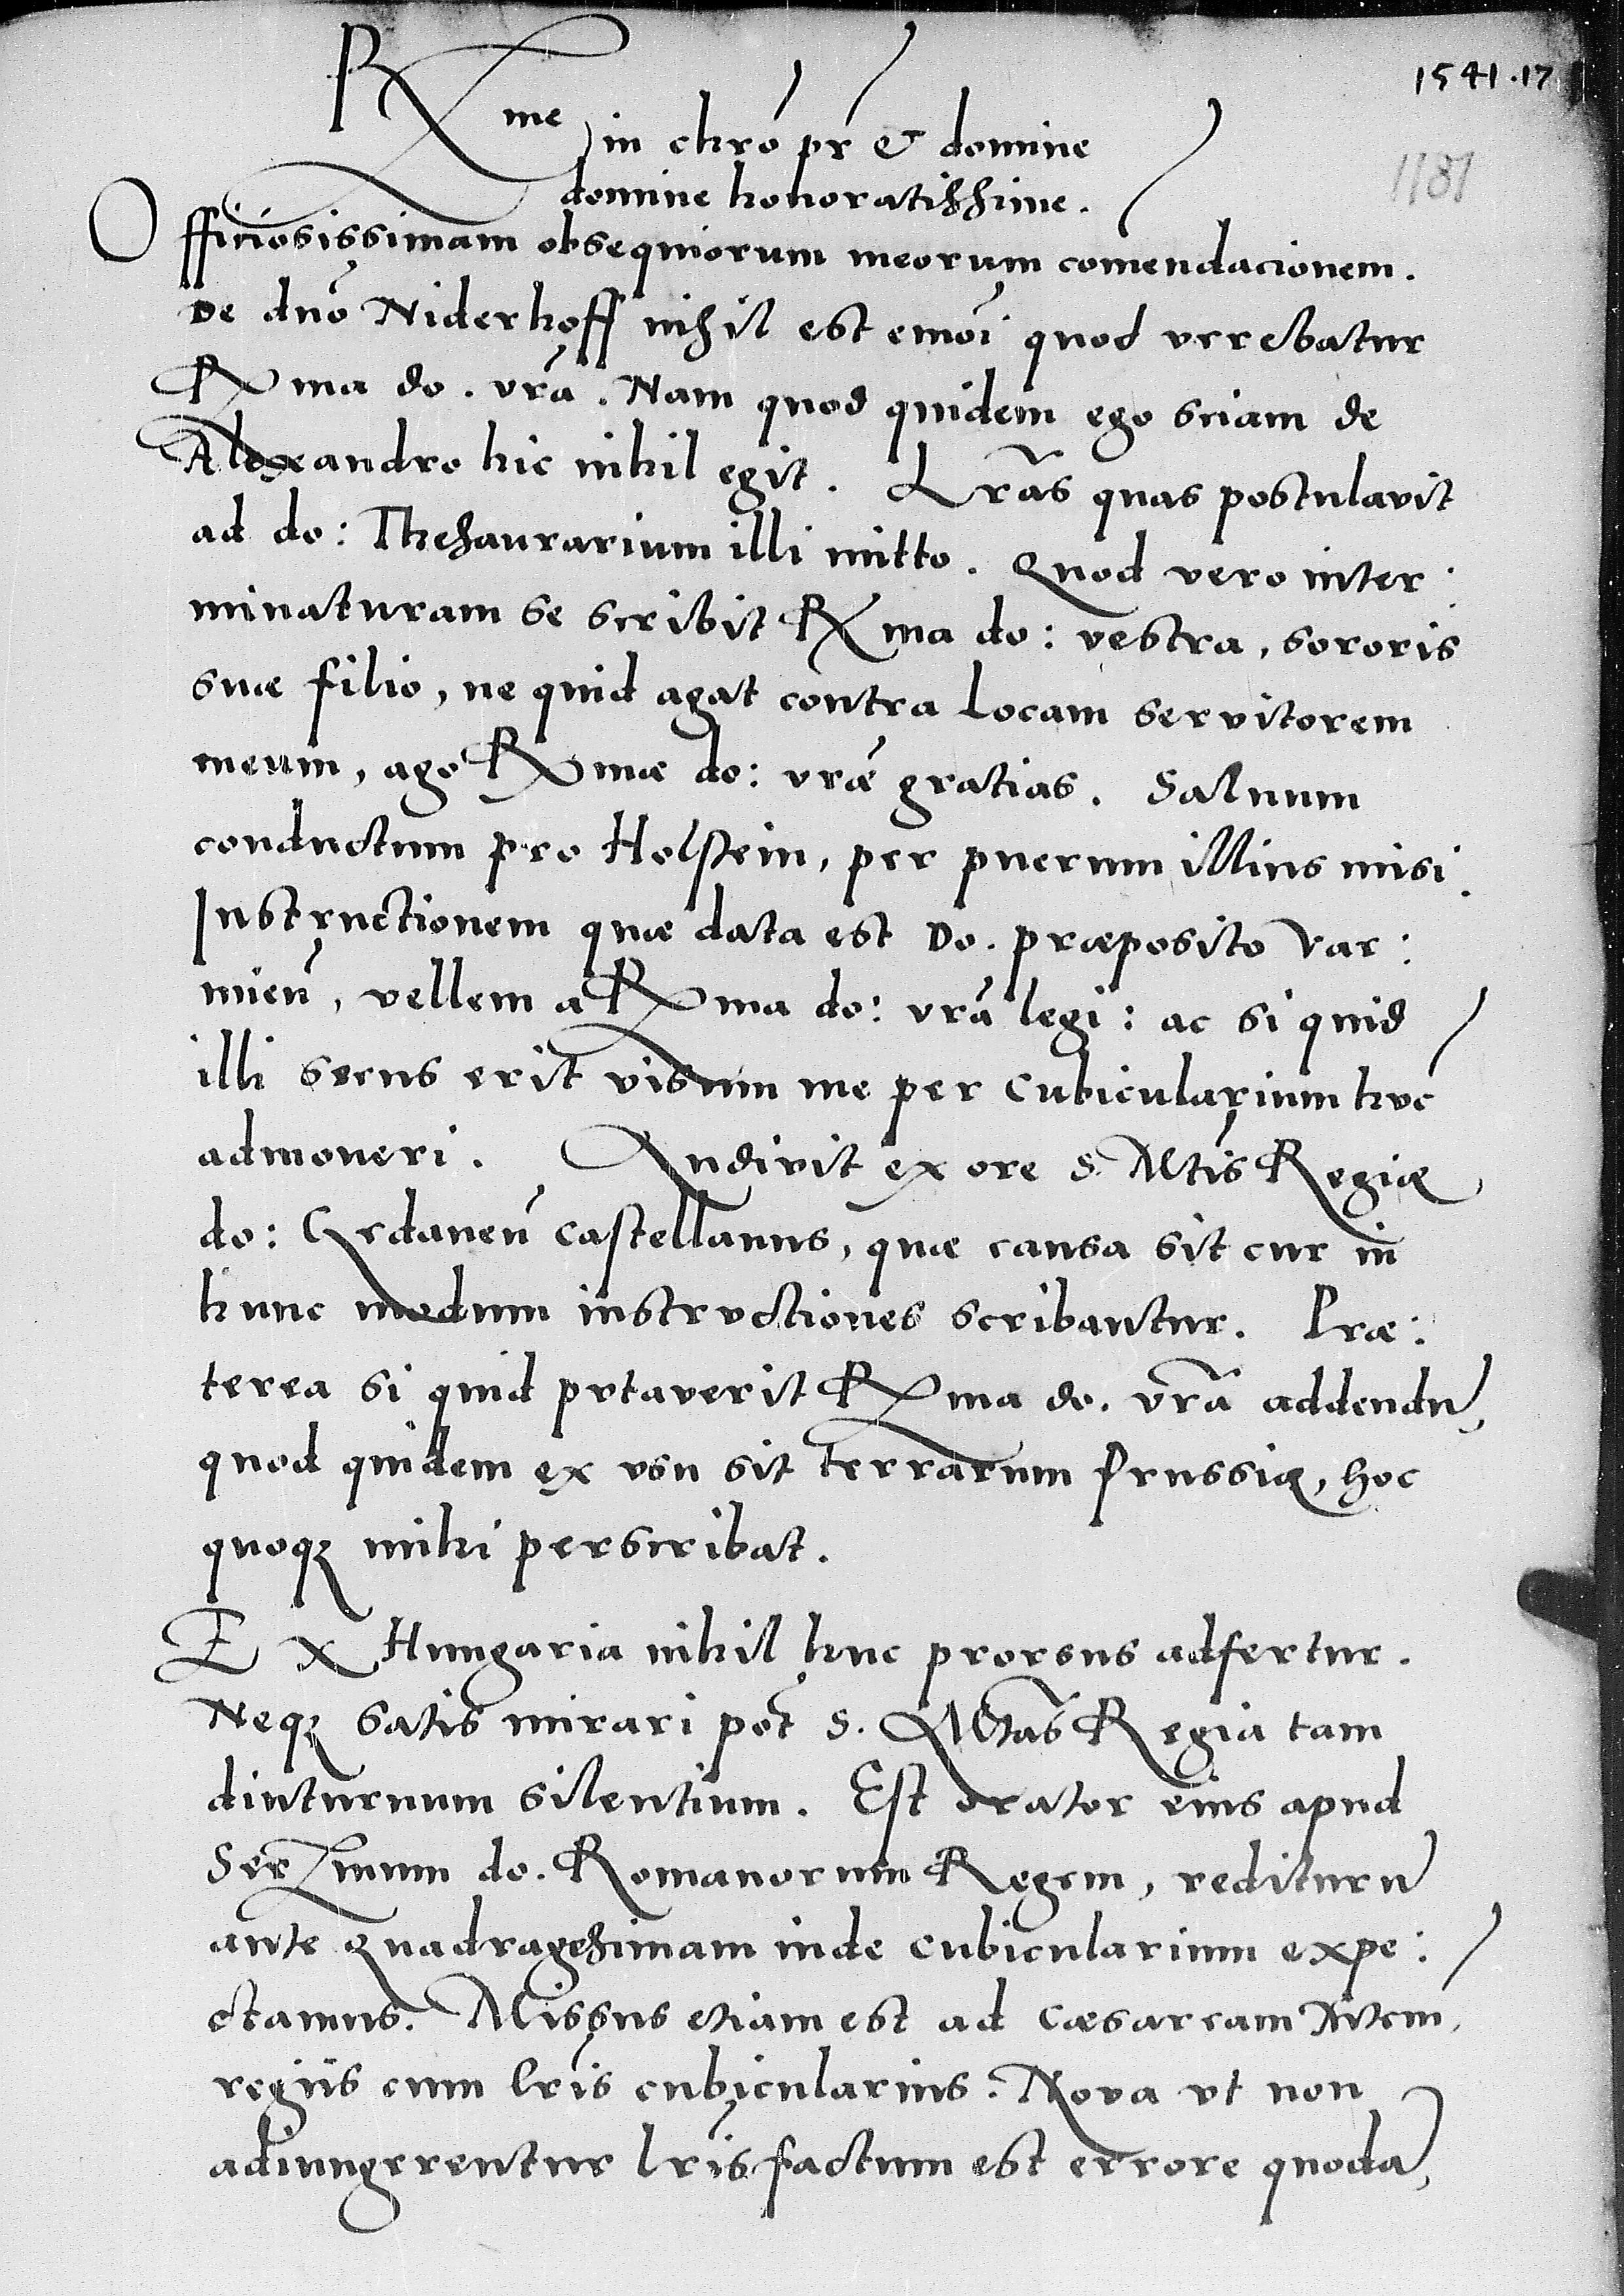 1541.17
Rme in chrõ pr̃ & domine
1181
domine honoratissime.
Officiosissimam obsequiorum meorum comendacionem.
De dnõ Niderhoff nihil est emõi quod verebatur
Rma do. vrã. Nam quod quidem ego sciam de
Alexandro hic nihil egit. Lrãs quas postulavit
ad do: Thesaurarium illi mitto. Quod vero inter:
minaturam se scribit Rma do: vestra, sororis
suæ filio, ne quid agat contra Locam servitorem
meum, ago Rmæ do: vræ̃ gratias. Salvum
conductum pro Holstein, per puerum illius misi.
Instructionem quæ data est Do. præposito Var:
mieñ, vellem a Rma do: vrã legi: ac si quid
illi secus erit visum me per cubicularium huc
admoneri. Audivit ex ore S. Mtis Regiæ
do: Gedaneñ castellanus, quæ causa sit cur in
hunc modum instructiones scribantur. Præ:
terea si quid putaverit Rma do. vrã addendũ,
quod quidem ex usu sit terrarum Prussiæ, hoc
quoqz mihi perscribat.
Ex Hungaria nihil huc prorsus adfertur.
Neqz satis mirari põt S. Mtas Regia tam
diuturnum silentium. Est orator eius apud
Serᷤmum do. Romanorum Regem, rediturũ
ante quadragesimam inde cubicularium expe:
ctamus. Missus etiam est ad Cæsaream Mtem,
regiis cum lris̃ cubicularius. Nova ut non
adiungerentur lris̃ factum est errore quodã,